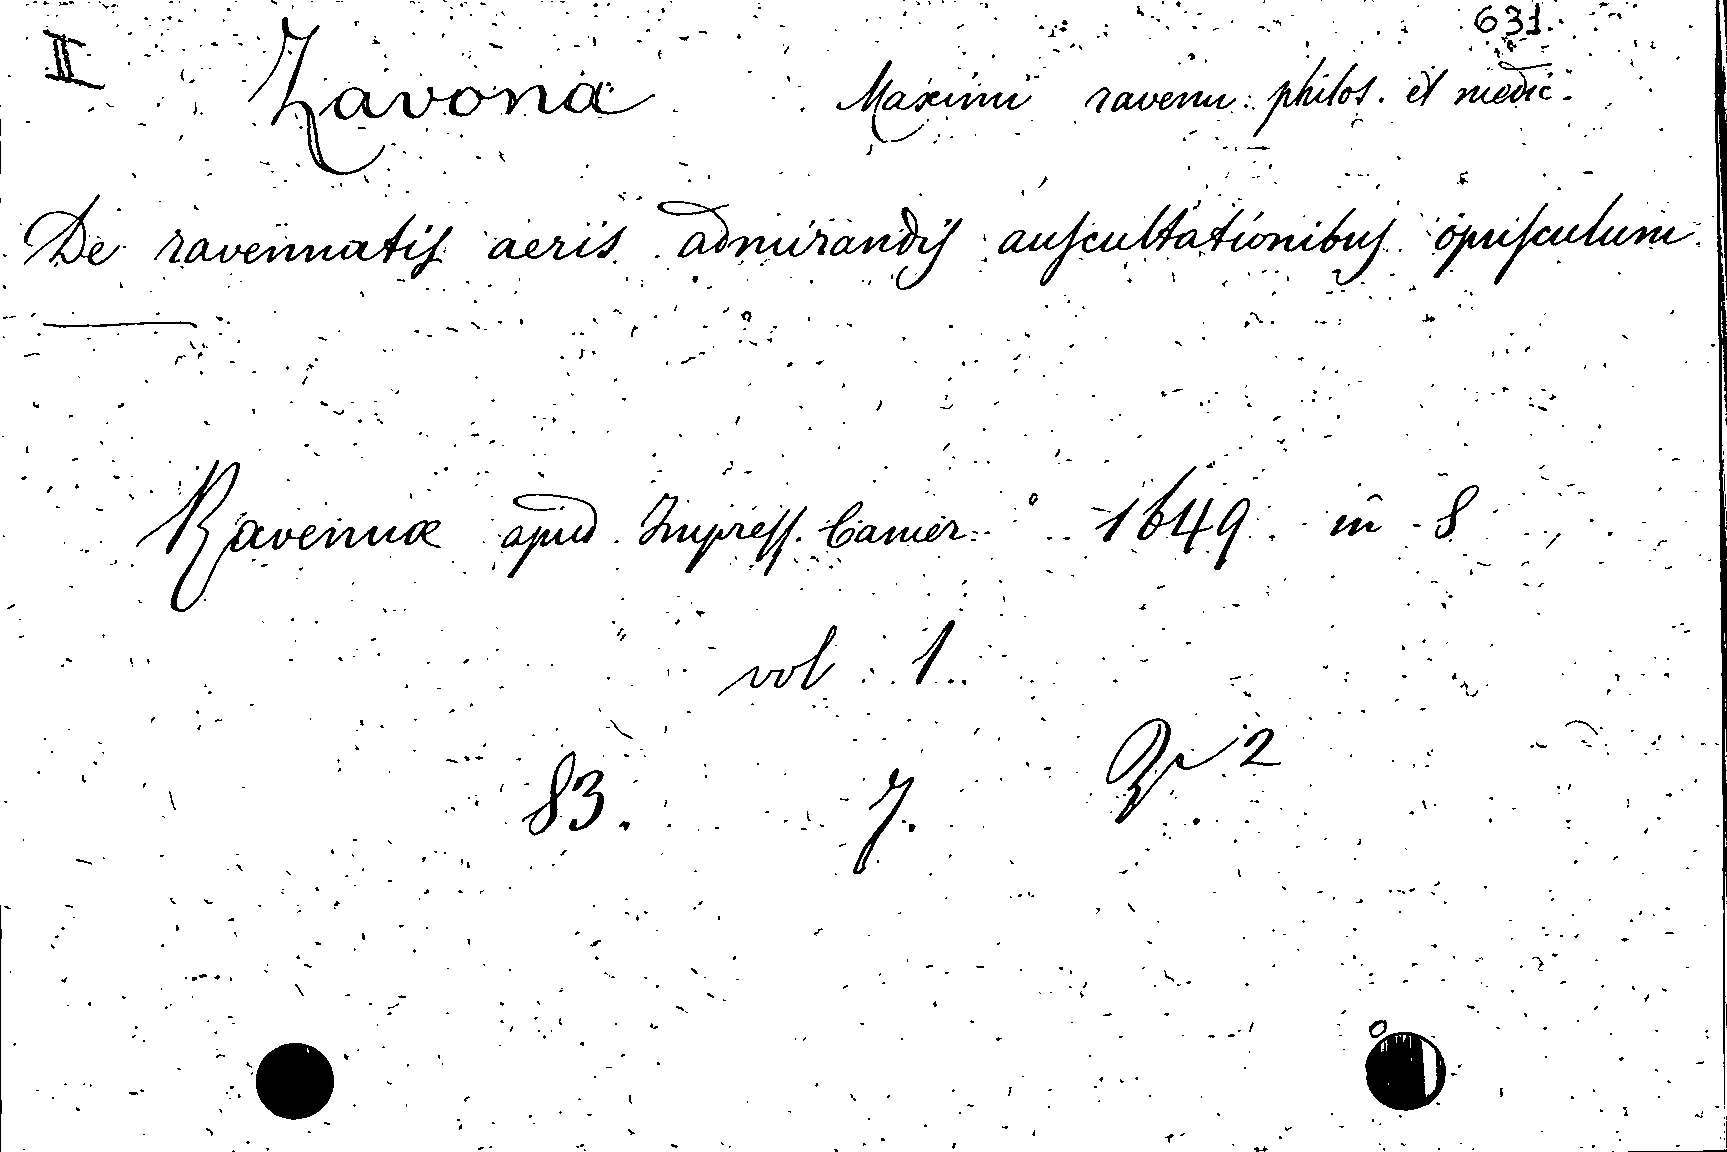 631
II Zavona Maximi ravenn: philos. et medic.
De ravennatis aeris admirandis auscultationibus opusculum
Ravennæ apud Impress. Camer. 1649 in 8
vol 1.
83. 7. 2